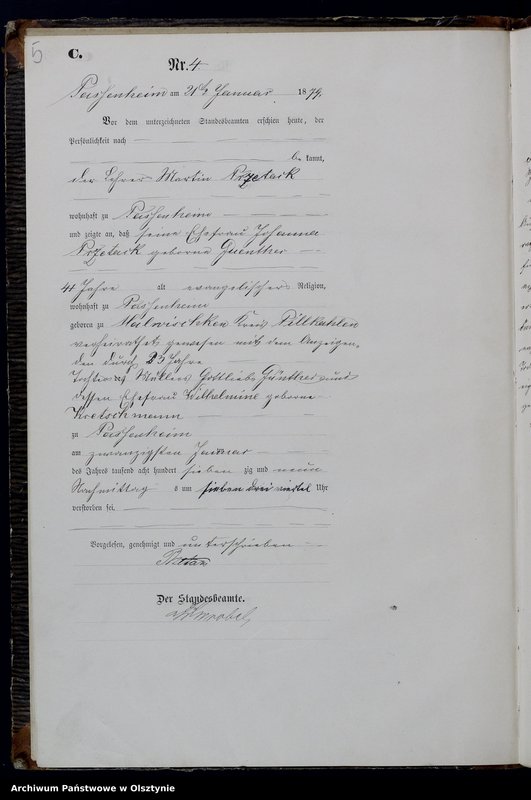 5
C.
Nr. 4
Passenheim am 21t Januar 1879.
Vor dem unterzeichneten Standesbeamten erschien heute, der
Persönlichkeit nach
be kannt,
der Lehrer Martin Przetack
wohnhaft zu Passenheim
und zeigte an, daß seine Ehefrau Johanna
Przetack geborne Guenther
44 Jahre alt evangelischer Religion,
wohnhaft zu Passenheim
geboren zu Malwischken Kreis Pillkallen
verheirathet gewesen mit dem Anzeigen-
den durch 23 Jahre
Tochter des Gottlieb Günther und
dessen Ehefrau Wilhelmine geborne
Kretschmann
zu Passenheim
am zwanzigsten Januar
des Jahres tausend acht hundert sieben zig und neun
Nachmittag s um sieben drei viertel Uhr
verstorben sei.
Vorgelesen, genehmigt und unterschrieben
Der Standesbeamte.
Archiwum Państwowe w Olsztynie